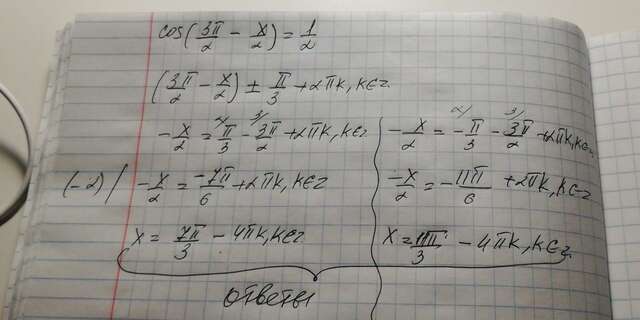 cos(3π/2 - x/2) = 1/2
(3π/2 - x/2) ± π/3 + 2πk, k∈z
-x/2 = π/3 - 3π/2 + 2πk, k∈z
(-2) | -x/2 = -7π/6 + 2πk, k∈z
x = 7π/3 - 4πk, k∈z
-x/2 = -π/3 - 3π/2 + 2πk, k∈z
-x/2 = -11π/6 + 2πk, k∈z
x = 11π/3 - 4πk, k∈z
ответы